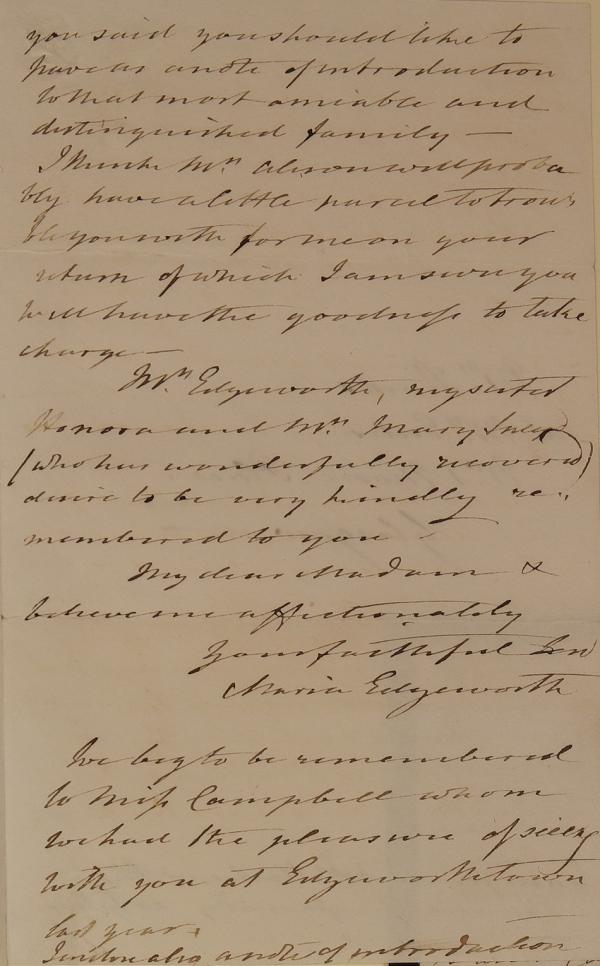 you said you should like to
have as a note of introduction
to that most amiable and
distinguished family —
I think Mrs. Alison will proba
bly have a little parcel to trou
ble you with for me on your
return of which I am sure you
will have the goodness to take
charge —
Mrs. Edgeworth, my sister
Honora and Mrs. Mary
(who has wonderfully recovered)
desire to be very kindly re-
membered to you —
My dear Madam &
believe me affectionately
Your faithful
Maria Edgeworth
We beg to be remembered
to Miss Campbell whom
we had the pleasure of seeing
with you at Edgeworthstown
last year.
I enclose also a note of introduction